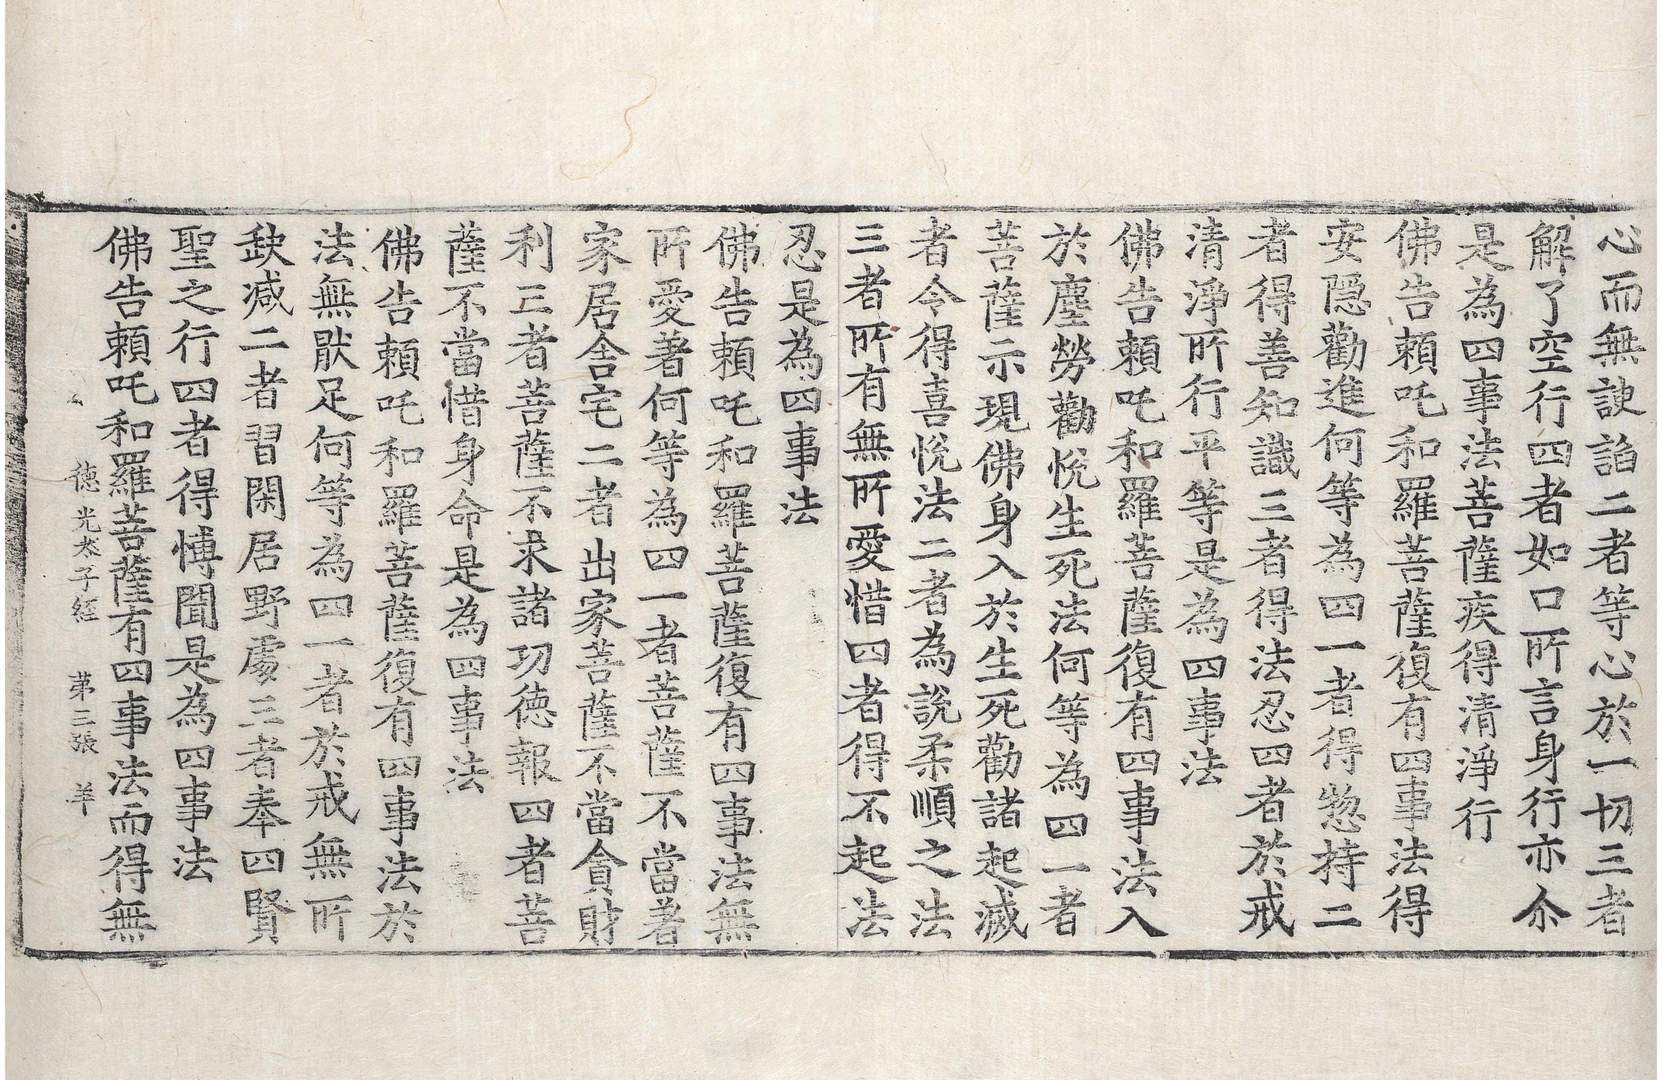 心而無諛諂二者等心於一切三者
解了空行四者如口所言身行亦尒
是為四事法菩薩疾得清淨行
佛告賴吒和羅菩薩復有四事法得
安隱勸進何等為四一者得惣持二
者得善知識三者得法忍四者於戒
清淨所行平等是為四事法
佛告賴吒和羅菩薩復有四事法入
於塵勞勸悅生死法何等為四一者
菩薩示現佛身入於生死勸諸起滅
者令得喜悅法二者為說柔順之法
三者所有無所愛惜四者得不起法
忍是為四事法
佛告賴吒和羅菩薩復有四事法無
所愛著何等為四一者菩薩不當著
家居舍宅二者出家菩薩不當貪財
利三者菩薩不求諸功德報四者菩
薩不當惜身命是為四事法
佛告賴吒和羅菩薩復有四事法於
法無猒足何等為四一者於戒無所
缺减二者習閑居野處三者奉四賢
聖之行四者得博聞是為四事法
德光太子經 第三張 羊
佛告賴吒和羅菩薩有四事法而得無